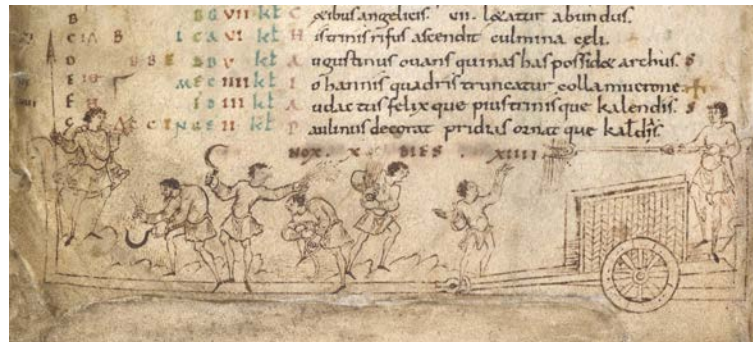 B BG VII kł C ęxibus angelicis. VII. locatur abundus.
C VI kł H istrinis rifus ascendit culmina cęli.
D V kł A ugustinus ouans quinas has possidet archus. S
E IIII kł I ohannis quadris truncatur colla mucrone.
F III kł A udactus felix que pius trinisque kalendis. S
G II kł P aulinus decorat pridias ornat que kałdis.
NOX. X. DIES. XIIII